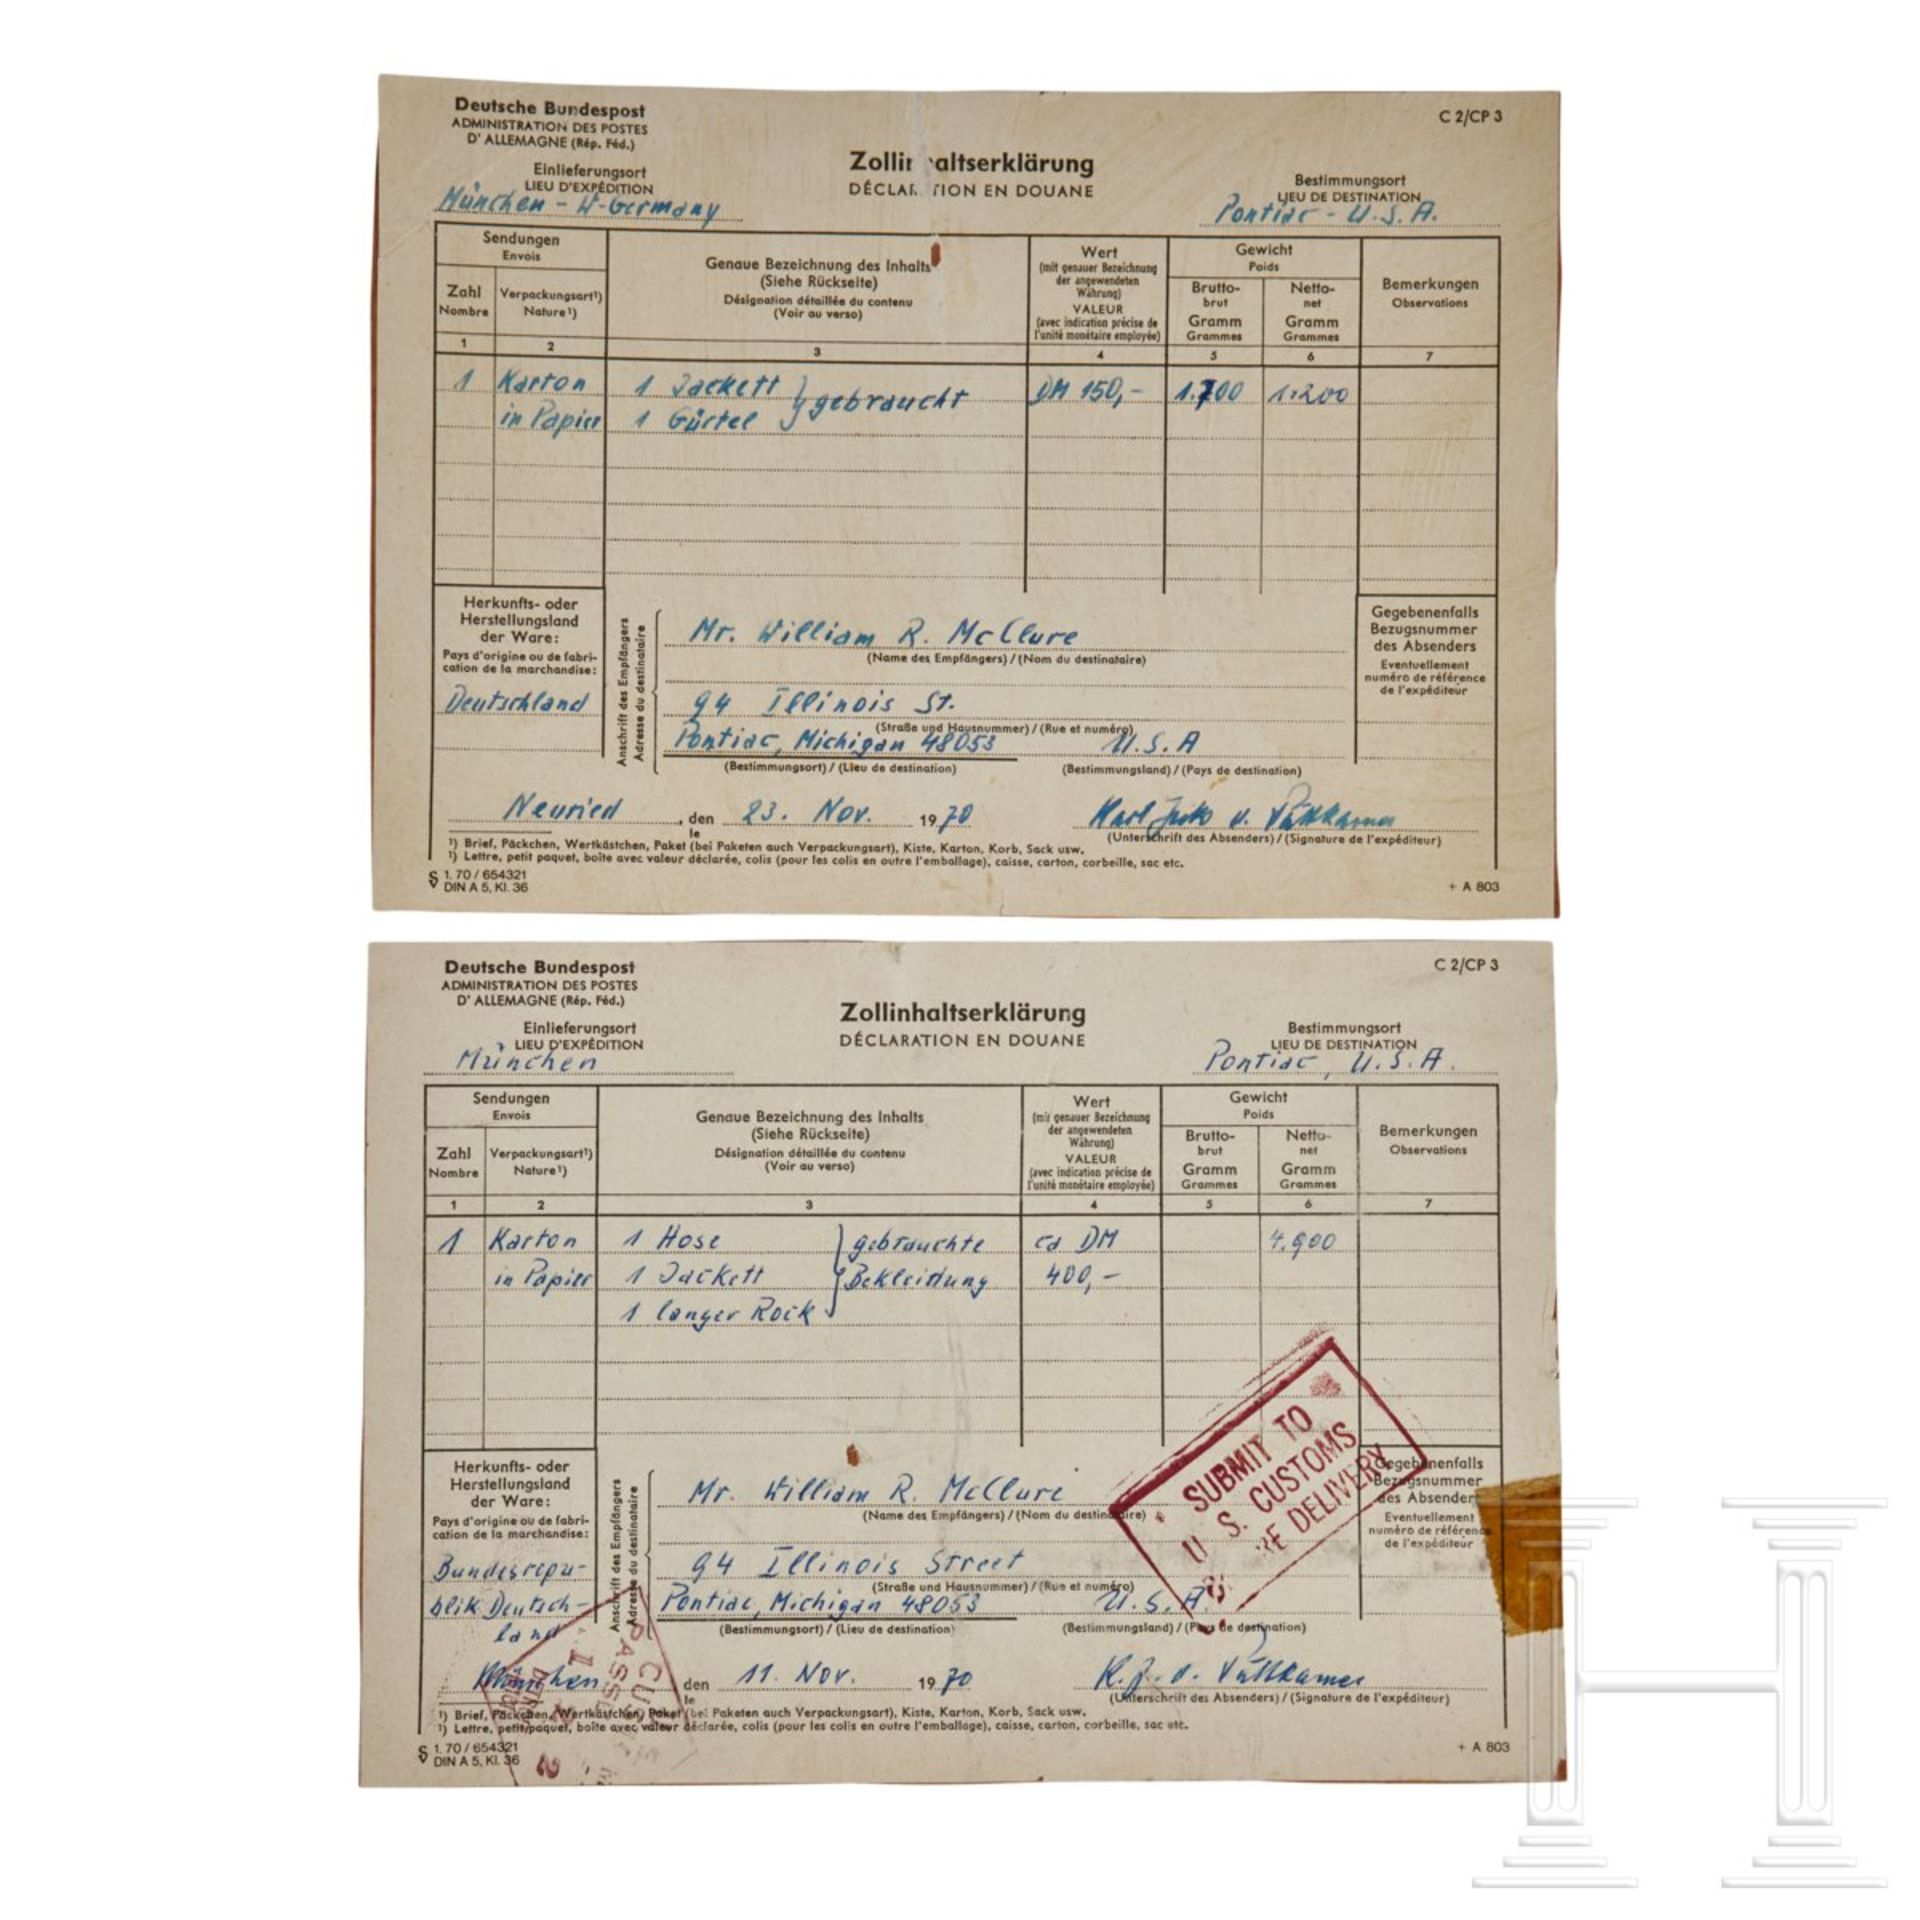 Deutsche Bundespost
ADMINISTRATION DES POSTES
D' ALLEMAGNE (Rép. Féd.)
C 2/CP 3
Zollin altserklärung
DÉCLARATION EN DOUANE
Einlieferungsort
LIEU D'EXPÉDITION
München - W-Germany
Bestimmungsort
LIEU DE DESTINATION
Pontiac - U.S.A.
Sendungen
Envois
Zahl
Nombre
Verpackungsart¹)
Nature¹)
Genaue Bezeichnung des Inhalts
(Siehe Rückseite)
Désignation détaillée du contenu
(Voir au verso)
Wert
(mit genauer Bezeichnung
der angewendeten
Währung)
VALEUR
(avec indication précise de
l'unité monétaire employée)
Gewicht
Poids
Brutto-
brut
Gramm
Grammes
Netto-
net
Gramm
Grammes
Bemerkungen
Observations
1 2 3 4 5 6 7
1 Karton 1 Jackett gebraucht DM 150,- 1.700 1.200
in Papier 1 Gürtel
Herkunfts- oder
Herstellungsland
der Ware:
Pays d'origine ou de fabri-
cation de la marchandise:
Deutschland
Anschrift des Empfängers
Adresse du destinataire
Mr. William R. McClure
(Name des Empfängers) / (Nom du destinataire)
94 Illinois St.
(Straße und Hausnummer) / (Rue et numéro)
Pontiac, Michigan 48053 U.S.A
(Bestimmungsort) / (Lieu de destination) (Bestimmungsland) / (Pays de destination)
Gegebenenfalls
Bezugsnummer
des Absenders
Eventuellement
numéro de référence
de l'expéditeur
Neuried, den 23. Nov. 1970 Karl Jesko v. Puttkamer
le
(Unterschrift des Absenders) / (Signature de l'expéditeur)
¹) Brief, Päckchen, Wertkästchen, Paket (bei Paketen auch Verpackungsart), Kiste, Karton, Korb, Sack usw.
¹) Lettre, petit paquet, boîte avec valeur déclarée, colis (pour les colis en outre l'emballage), caisse, carton, corbeille, sac etc.
1. 70 / 654321
DIN A 5, Kl. 36
+ A 803
Deutsche Bundespost
ADMINISTRATION DES POSTES
D' ALLEMAGNE (Rép. Féd.)
C 2/CP 3
Zollinhaltserklärung
DÉCLARATION EN DOUANE
Einlieferungsort
LIEU D'EXPÉDITION
München
Bestimmungsort
LIEU DE DESTINATION
Pontiac, U.S.A.
Sendungen
Envois
Zahl
Nombre
Verpackungsart¹)
Nature¹)
Genaue Bezeichnung des Inhalts
(Siehe Rückseite)
Désignation détaillée du contenu
(Voir au verso)
Wert
(mit genauer Bezeichnung
der angewendeten
Währung)
VALEUR
(avec indication précise de
l'unité monétaire employée)
Gewicht
Poids
Brutto-
brut
Gramm
Grammes
Netto-
net
Gramm
Grammes
Bemerkungen
Observations
1 2 3 4 5 6 7
1 Karton 1 Hose gebrauchte ca DM 4.900
in Papier 1 Jackett Bekleidung 400,-
1 langer Rock
SUBMIT TO
U. S. CUSTOMS
DELIVERY
Herkunfts- oder
Herstellungsland
der Ware:
Pays d'origine ou de fabri-
cation de la marchandise:
Bundesrepu-
blik Deutsch-
land
Anschrift des Empfängers
Adresse du destinataire
Mr. William R. McClure
(Name des Empfängers) / (Nom du destinataire)
94 Illinois Street
(Straße und Hausnummer) / (Rue et numéro)
Pontiac, Michigan 48053 U.S.A.
(Bestimmungsort) / (Lieu de destination) (Bestimmungsland) / (Pays de destination)
Gegebenenfalls
Bezugsnummer
des Absenders
Eventuellement
numéro de référence
de l'expéditeur
München den 11. Nov. 1970 K.J. v. Puttkamer
le
(Unterschrift des Absenders) / (Signature de l'expéditeur)
¹) Brief, Päckchen, Wertkästchen, Paket (bei Paketen auch Verpackungsart), Kiste, Karton, Korb, Sack usw.
¹) Lettre, petit paquet, boîte avec valeur déclarée, colis (pour les colis en outre l'emballage), caisse, carton, corbeille, sac etc.
1. 70 / 654321
DIN A 5, Kl. 36
+ A 803